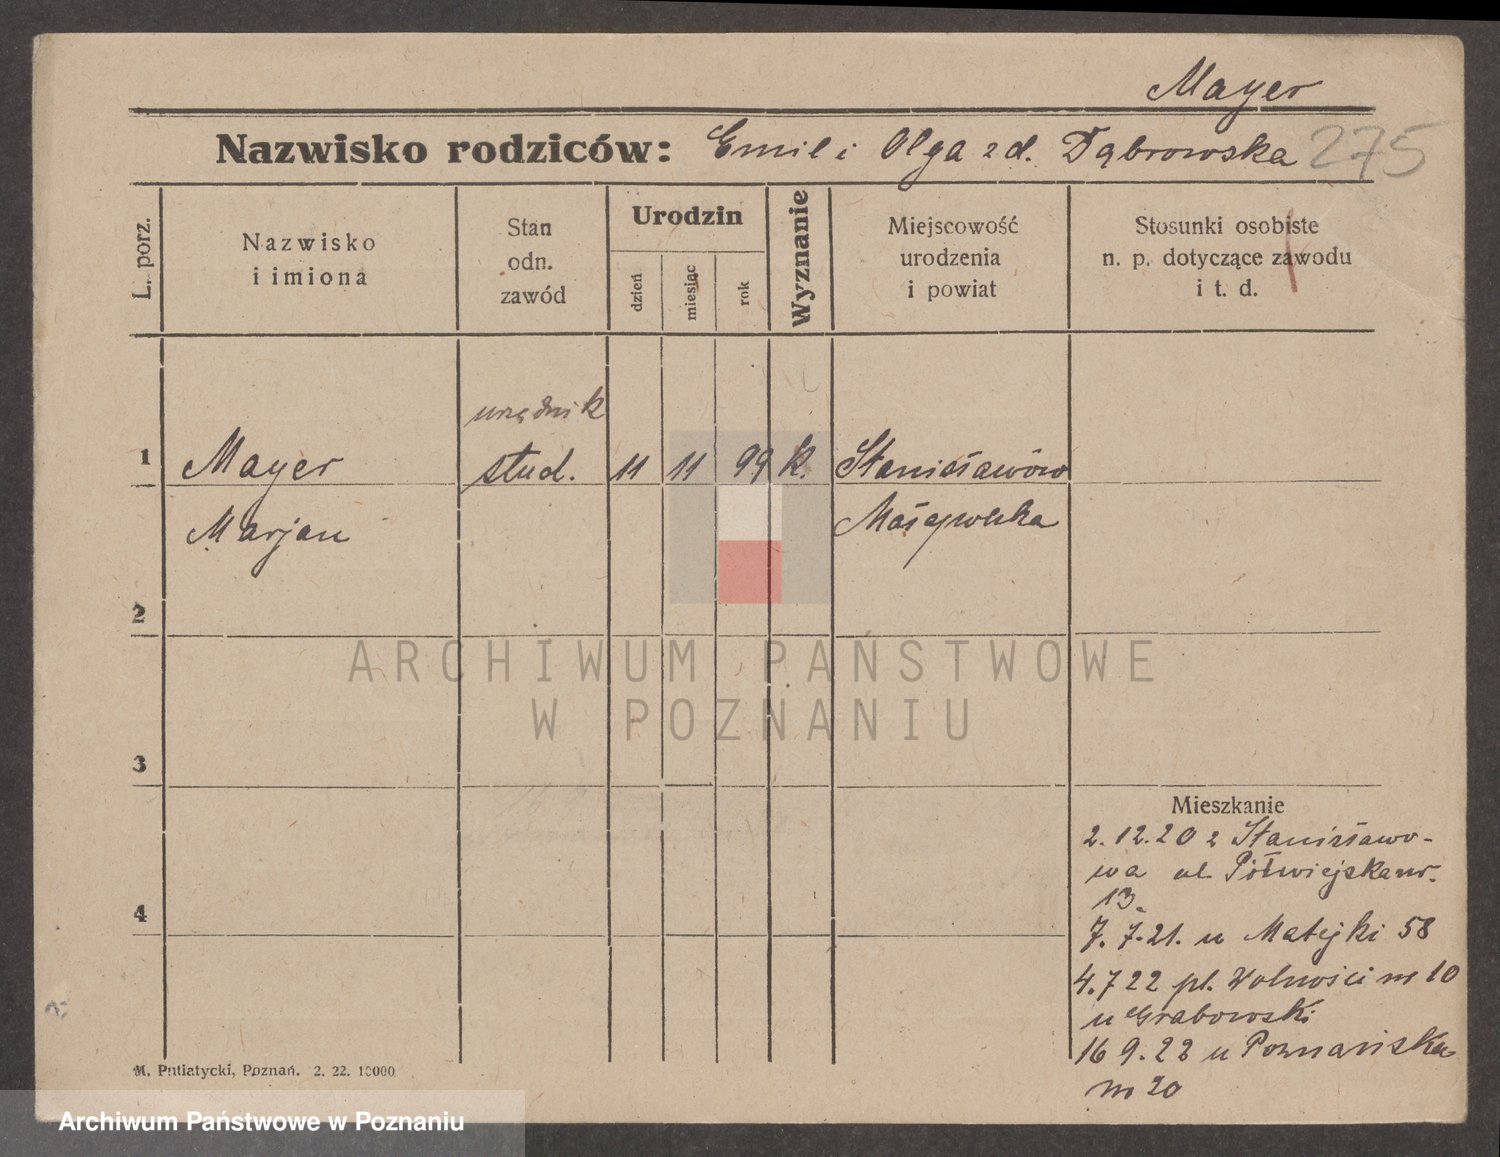 Mayer
Nazwisko rodziców: Emil i Olga zd. Dąbrowska 275
L. porz.
Nazwisko
i imiona
Stan
odn.
zawód
Urodzin
dzień
miesiąc
rok
Wyznanie
Miejscowość
urodzenia
i powiat
Stosunki osobiste
n. p. dotyczące zawodu
i t. d.
urzędnik
1 Mayer stud. 11 11 99 k. Stanisławów
Marjan Małopolska
2
ARCHIWUM PAŃSTWOWE
W POZNANIU
3
4
Mieszkanie
2.12.20 z Stanisławo-
wa ul. Półwiejska nr.
13.
7.7.21. u Matejki 58
4.7 22 pl. Wolności nr 10
u Grabowski
16 9.22 u Poznańska
nr 20
M. Putiatycki, Poznań. 2. 22. 10000
Archiwum Państwowe w Poznaniu